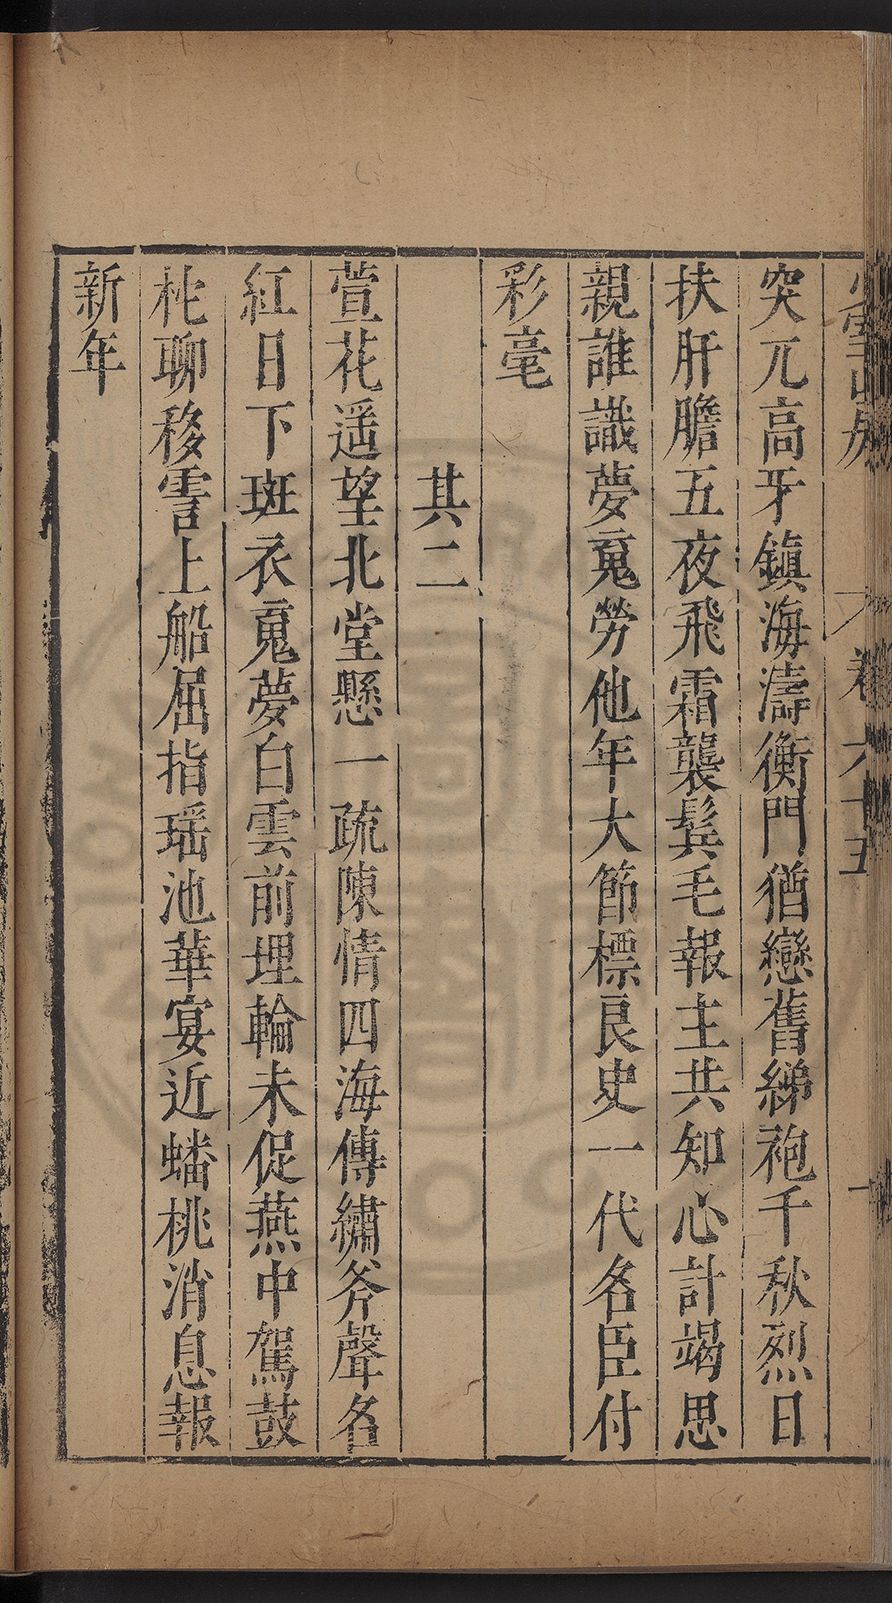 突兀高牙鎮海濤衡門猶戀舊綈袍千秋烈日
扶肝膽五夜飛霜襲鬂毛報主共知心計竭思
親誰識夢䰟勞他年大節標良史一代名臣付
彩毫
其二
萱花遥望北堂懸一疏陳情四海傳繡斧聲名
紅日下斑衣䰟夢白雲前埋輪未促燕中駕鼓
枻聊移霅上船屈指瑶池華宴近蟠桃消息報
新年